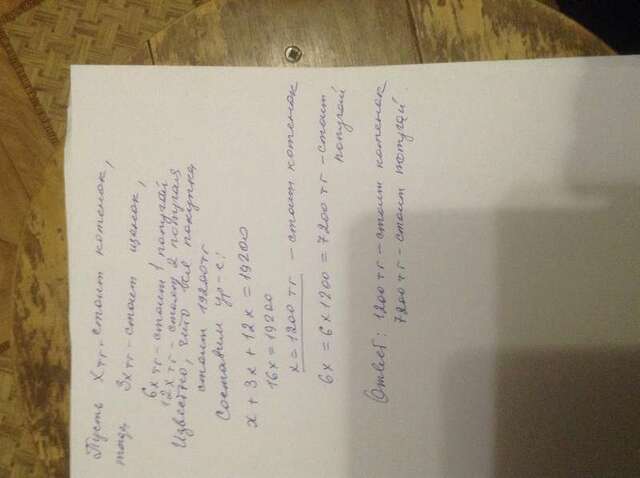 Пусть x тг. - стоит котенок,
тогда 3x тг - стоит щенок,
6x тг - стоит 1 попугай
12x тг - стоят 2 попугая
Известно, что вся покупка
стоит 19200 тг
Составим ур-е:
x + 3x + 12x = 19200
16x = 19200
x = 1200 тг - стоит котенок
6x = 6x1200 = 7200 тг - стоит
попугай
Ответ: 1200 тг - стоит котенок
7200 тг - стоит попугай